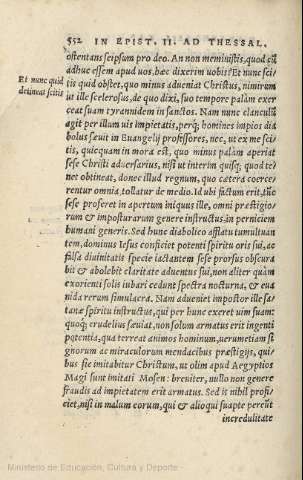 552 IN EPIST. II. AD THESSAL.
ostentans seipsum pro deo. An non meministis, quod cũ
adhuc essem apud uos, hæc dixerim uobis? Et nunc sci-
Et nunc quid
detineat scitis
tis quid obstet, quo minus adueniat Christus, nimirum
ut ille scelerosus, de quo dixi, suo tempore palàm exer
ceat suam tyrannidem in sanctos. Nam nunc clanculũ
agit per illum uis impietatis, perq́; homines impios dia
bolus sæuit in Euangelij professores, nec, ut ex me sci-
tis, quicquam in mora est, quo minus palàm aperiat
sese Christi aduersarius, nisi ut interim quisq;, quod te-
net obtineat, donec illud regnum, quo cætera coërce-
rentur omnia, tollatur de medio. Id ubi factum erit, tũc
sese proferet in apertum iniquus ille, omni præstigio-
rum & imposturarum genere instructus, in perniciem
humani generis. Sed hunc diabolico afflatu tumultuan-
tem, dominus Iesus conficiet potenti spiritu oris sui, ac
falsa diuinitatis specie iactantem sese prorsus obscura
bit & abolebit claritate aduentus sui, non aliter quàm
exorienti solis iubari cedunt spectra nocturna, & eua
nida rerum simulacra. Nam adueniet impostor ille sa-
tanæ spiritu instructus, qui per hunc exeret uim suam:
quoq́; crudelius sæuiat, non solum armatus erit ingenti
potentia, qua terreat animos hominum, uerumetiam si
gnorum ac miraculorum mendacibus præstigijs, qui-
bus sic imitabitur Christum, ut olim apud Aegyptios
Magi sunt imitati Mosen: breuiter, nullo non genere
fraudis ad impietatem erit armatus. Sed is nihil profi-
ciet, nisi in malum eorum, qui & alioqui suapte pereũt
incredulitate
Ministerio de Educación, Cultura y Deporte